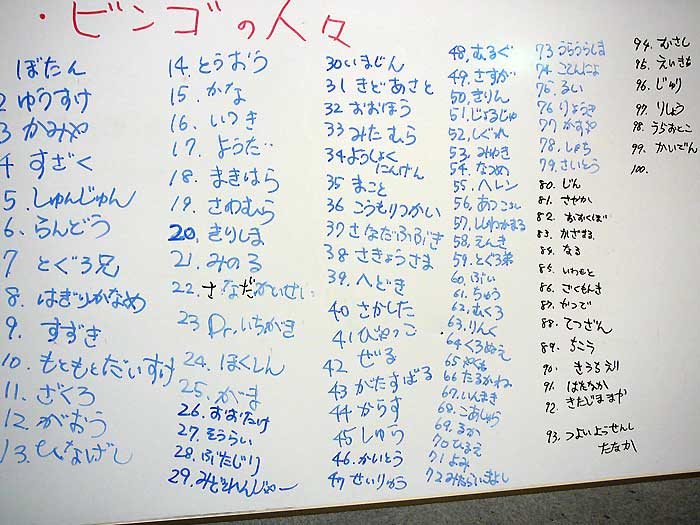 ・ビンゴの人々
ぼたん
2 ゆうすけ
3 かみや
4 すざく
5. しゅんじゅん
6. らんどう
7 とぐろ兄
8. はぎりかなめ
9. すずき
10. もともとだいすけ
11. ざくろ
12. がおう
13.
14. とうおう
15. かな
16. いつき
17. ようだ
18. まきはら
19. さわむら
20. きりしま
21. みのる
22. さなだかいせい
23 Dr.いちがき
24. ほくしん
25. がま
26. おおたけ
27. そうらい
28. ぶたじり
29.
30 いまじん
31 きどあさと
32 おおほう
33 みたむら
34 ようしょく
にんげん
35 まこと
36 こうもりつかい
37 さなだふぶき
38 さきょうさま
39. へどき
40 さかした
41 ひゃっこ
42 ぜる
43 がたすばる
44 からす
45 しゅら
46. かいとう
47 せいりゅう
48. むるぐ
49. さすが
50. きりん
51. じょるじゅ
52. しぐれ
53. みゆき
54. なつめ
55. ヘレン
56.
57. ししわかまる
58. えんき
59. とぐろ弟
60. ぶい
61. ちゅう
62. むくろ
63. りんく
64 くろぬえ
65.
66 たるかね
67. いんまき
68. こあしゅら
69. るか
70 ひるえ
71. よみ
72
73 うらうらしま
74.
75. るい
76 りょうき
77 かすや
78. しゃち
79. さいとう
80. じん
81. さやか
82. おおくぼ
83. かざまる
84. なる
85. いわもと
86. ごくもんき
87. かつで
88. てつざん
89. ちこう
90.
91. はたなか
92. きたじままや
93. つよいようせんし
たなか
94. むさし
95. えいきち
96. じゅり
97. りしょう
98. うらおとこ
99. かいでん
100.